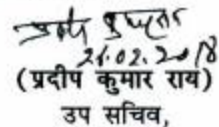 26.02.2018
(प्रदीप कुमार राय)
उप सचिव,